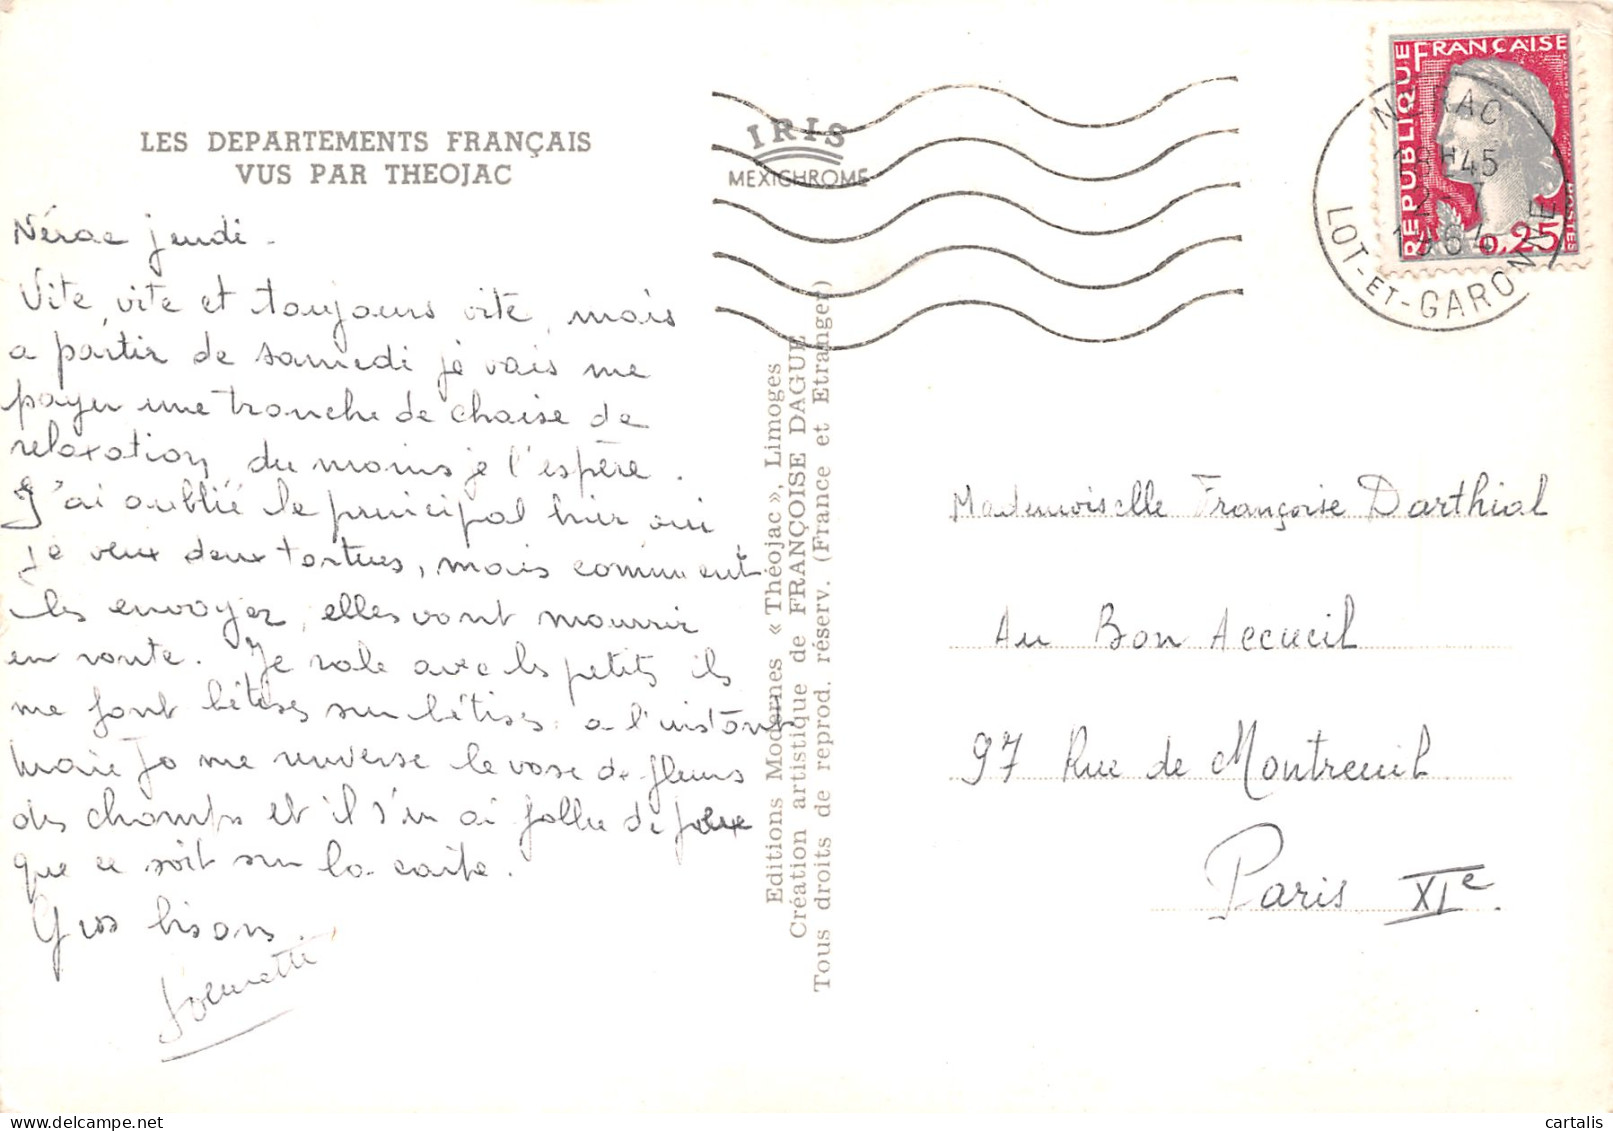 LES DEPARTEMENTS FRANÇAIS
VUS PAR THEOJAC
Nérac jeudi -
Vite, vite et toujours vite, mais
a partir de samedi je vais me
payer une tranche de chaise de
relaxation, du moins je l'espère.
J'ai oublié le principal hier, oui
je veux deux tortues, mais comment
les envoyer, elles vont mourrir
en route. Je rale avec les petits ils
me font bêtises sur bêtises. a l'instant
Marie Jo me renverse le vase de fleurs
des champs et il s'en ai fallu de peu
que ce soit sur la carte.
Gros bisous.
IRIS
MEXICHROME
Editions Modernes « Théojac », Limoges
Création artistique de FRANÇOISE DAGUE
Tous droits de reprod. réserv. (France et Etranger)
REPUBLIQUE FRANÇAISE
POSTES
0,25
NERAC
H45
1964
LOT-ET-GARONNE
Mademoiselle Françoise Darthial
Au Bon Accueil
97 Rue de Montreuil
Paris XIe.
cartalis